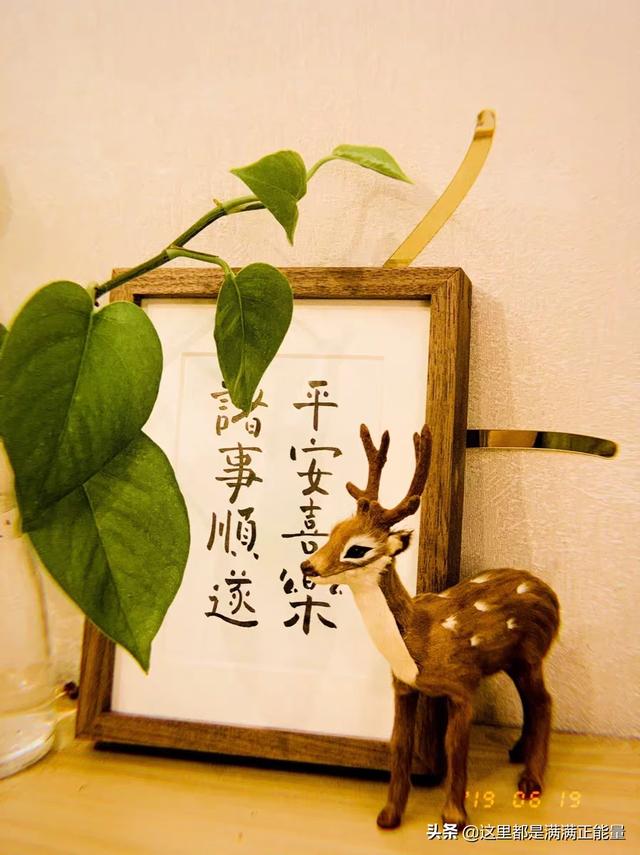 平安喜樂
諸事順遂
'19 06 19
头条 @这里都是满满正能量